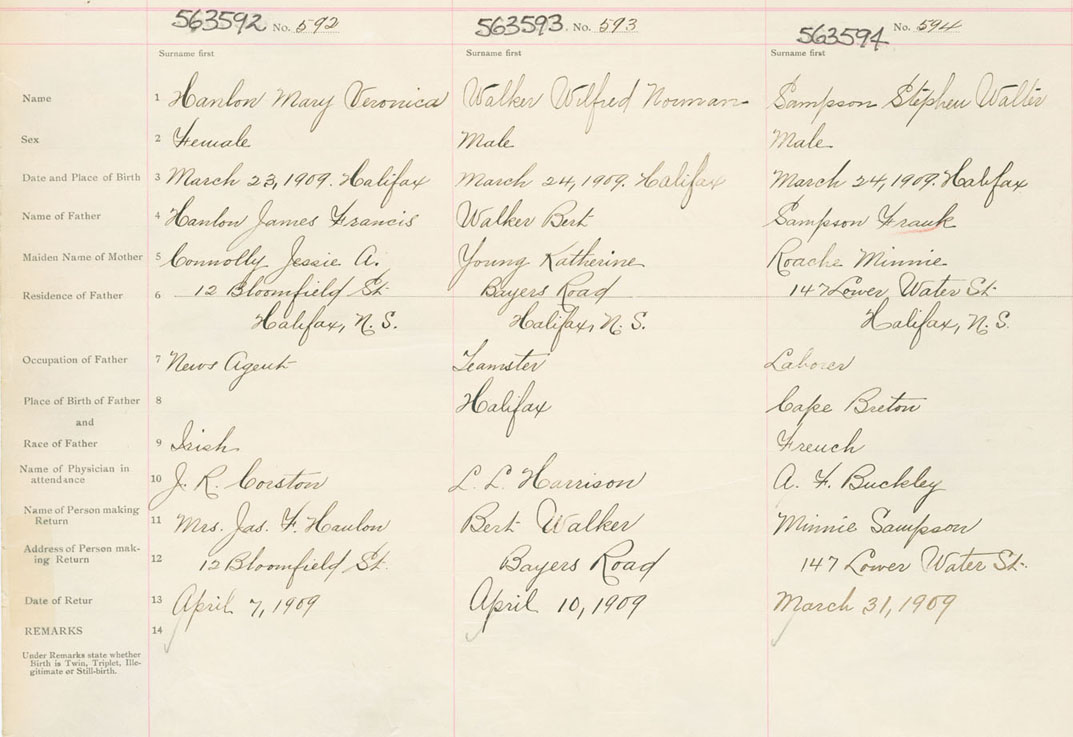 563592 No. 592 563593 No. 593 563594 No. 594
Surname first Surname first Surname first
Name 1 Hanlon Mary Veronica Walker Wilfred Norman Sampson Stephen Walter
Sex 2 Female Male Male
Date and Place of Birth 3 March 23, 1909. Halifax March 24, 1909. Halifax March 24, 1909. Halifax
Name of Father 4 Hanlon James Francis Walker Bert Sampson Frank
Maiden Name of Mother 5 Connolly Jessie A. Young Katherine Roache Minnie
Residence of Father 6 12 Bloomfield St. Bayers Road 147 Lower Water St.
Halifax, N. S. Halifax, N. S. Halifax, N. S.
Occupation of Father 7 News Agent Teamster Laborer
Place of Birth of Father 8 Halifax Cape Breton
and
Race of Father 9 Irish French
Name of Physician in
attendance 10 J. R. Corston L. L. Harrison A. F. Buckley
Name of Person making
Return 11 Mrs. Jas. F. Hanlon Bert Walker Minnie Sampson
Address of Person mak-
ing Return 12 12 Bloomfield St. Bayers Road 147 Lower Water St.
Date of Retur 13 April 7, 1909 April 10, 1909 March 31, 1909
REMARKS 14
Under Remarks state whether
Birth is Twin, Triplet, Ille-
gitimate or Still-birth.